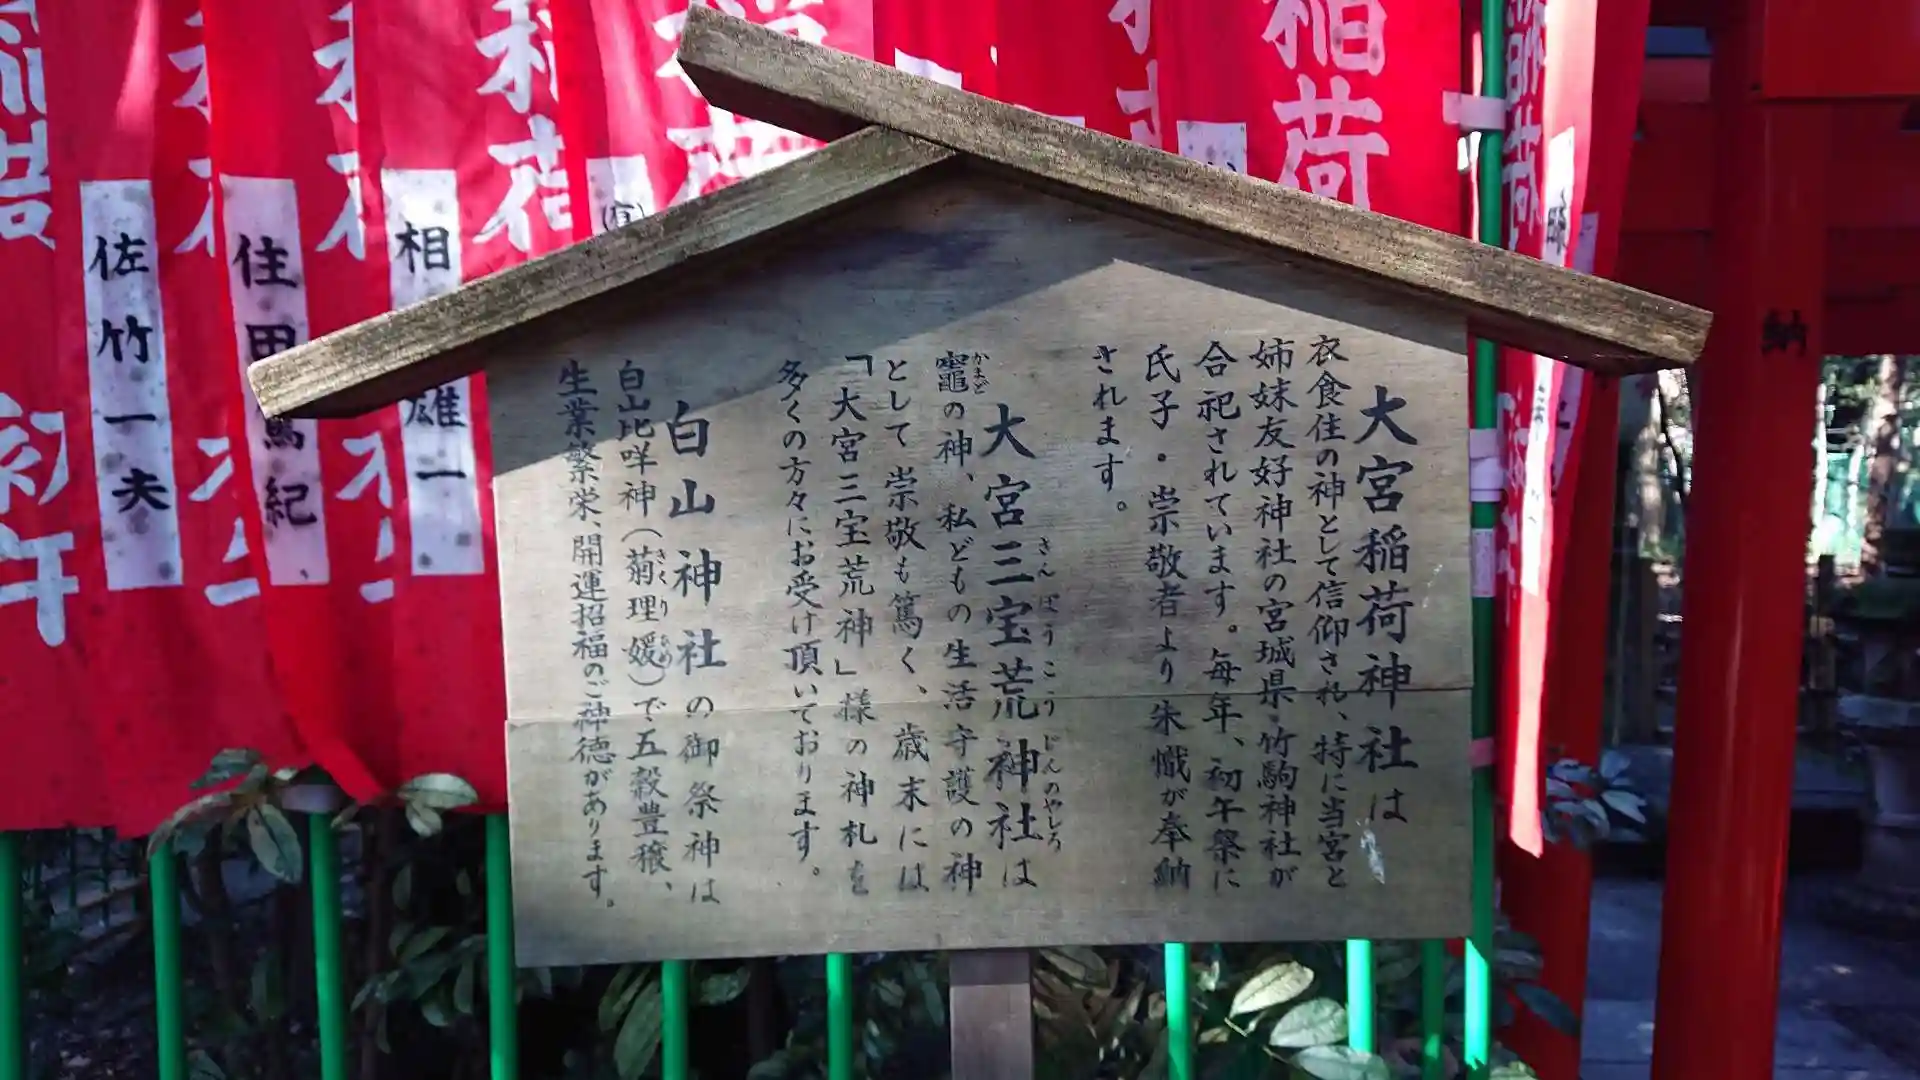 大宮稲荷神社は
衣食住の神として信仰され、特に当宮と
姉妹友好神社の宮城県・竹駒神社が
合祀されています。毎年、初午祭に
氏子・崇敬者より朱幟が奉納
されます。
大宮三宝荒神社は
さんぽうこうじんのやしろ
竈の神、私どもの生活守護の神
かまど
として崇敬も篤く、歳末には
「大宮三宝荒神」様の神札を
多くの方々にお受け頂いております。
白山神社の御祭神は
白山比咩神（菊理媛）で五穀豊穣、
きくりひめ
生業繁栄、開運招福のご神徳があります。
納
稲荷
相
雄一
住田篤紀
佐竹一夫
初午